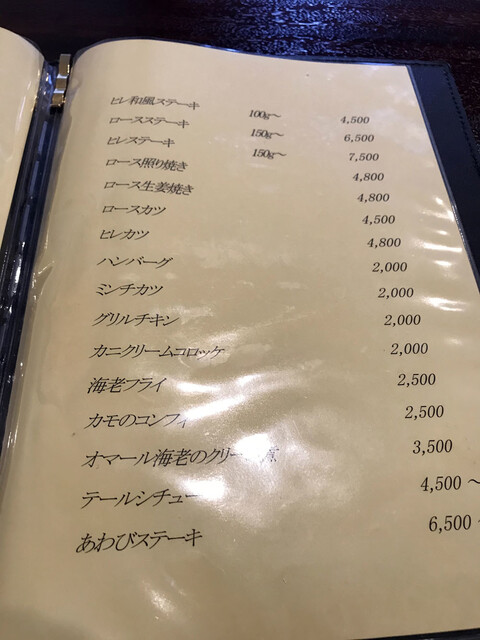 ヒレ和風ステーキ 100g～ 4,500
ロースステーキ 150g～ 6,500
ヒレステーキ 150g～ 7,500
ロース照り焼き 4,800
ロース生姜焼き 4,800
ロースカツ 4,500
ヒレカツ 4,800
ハンバーグ 2,000
ミンチカツ 2,000
グリルチキン 2,000
カニクリームコロッケ 2,000
海老フライ 2,500
カモのコンフィ 2,500
オマール海老のクリーム煮 3,500
テールシチュー 4,500～
あわびステーキ 6,500～